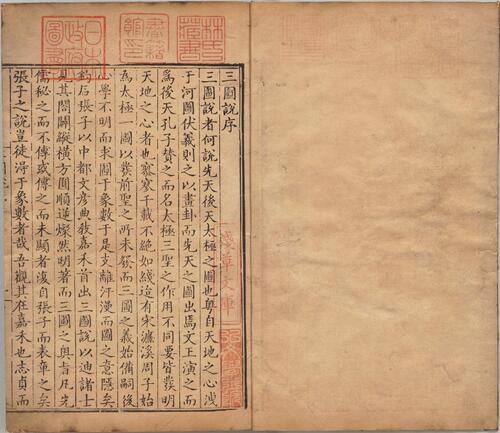 三圖說序
三圖說者何說先天後天太極之圖也粤自天地之心洩
于河圖伏羲則之以畫卦而先天之圖出焉文王演之而
爲後天孔子贊之而名太極三聖之作用不同要皆發明
天地之心者也寥寥千載不絕如綫迨有宋濂溪周子始
爲太極一圖以發前聖之所未發而三圖之義始備嗣後
心學不明而求圖于象數于是支離汗漫而圖之意隱矣
釣石張子以中都文彥典敎嘉禾首出三圖說以迪諸士
見其闔闢縱橫方圓順逆燦然明著而三圖之奥旨凡先
儒秘之而不傳或傳之而未顯者復自張子而表章之矣
張子之說豈徒淂于象數者哉吾觀其在嘉禾也志貞而
林氏藏書
書籍館印
日本政府圖書
淺草文庫